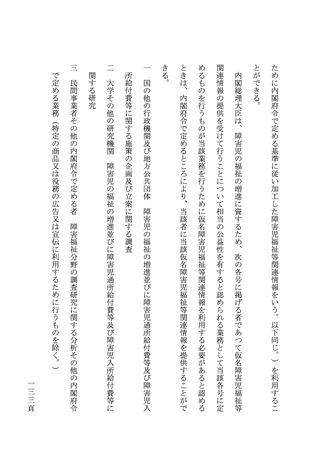 ために内閣府令で定める基準に従い加工した障害児福祉等関連情報をいう。以下同じ。）を利用するこ
とができる。
内閣総理大臣は、障害児の福祉の増進に資するため、次の各号に掲げる者であつて仮名障害児福祉等
関連情報の提供を受けて行うことについて相当の公益性を有すると認められる業務として当該各号に定
めるものを行うものが当該業務を行うために仮名障害児福祉等関連情報を利用する必要があると認める
ときは、内閣府令で定めるところにより、当該者に当該仮名障害児福祉等関連情報を提供することがで
きる。
一　国の他の行政機関及び地方公共団体　障害児の福祉の増進並びに障害児通所給付費等及び障害児入
所給付費等に関する施策の企画及び立案に関する調査
二　大学その他の研究機関　障害児の福祉の増進並びに障害児通所給付費等及び障害児入所給付費等に
関する研究
三　民間事業者その他の内閣府令で定める者　障害福祉分野の調査研究に関する分析その他の内閣府令
で定める業務（特定の商品又は役務の広告又は宣伝に利用するために行うものを除く。）
一三三頁